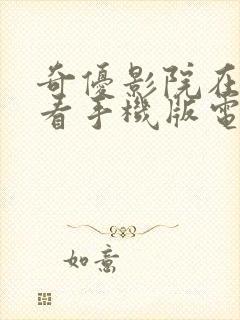 奇優影院在
看手機版電
如意